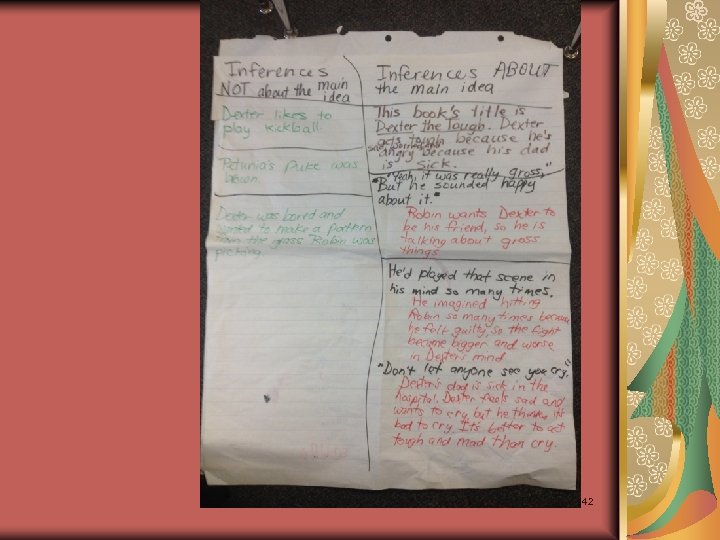 Inferences
NOT about the main
idea
Dexter likes to
play kickball.
Petunia's puke was
brown.
Dexter was bored and
wanted to make a pattern
from the grass Robin was
picking.
Inferences ABOUT
the main idea
This book's title is
Dexter the Tough. Dexter
acts tough because he's
angry because his dad
is sick.
"Yeah, it was really gross,"
"But he sounded happy
about it."
Robin wants Dexter to
be his friend, so he is
talking about gross
things.
He'd played that scene in
his mind so many times.
He imagined hitting
Robin so many times because
he felt guilty, so the fight
became bigger and worse
in Dexter's mind.
"Don't let anyone see you cry."
Dexter's dad is sick in the
hospital. Dexter feels sad and
wants to cry, but he thinks it's
bad to cry. It's better to act
tough and mad than cry.
42